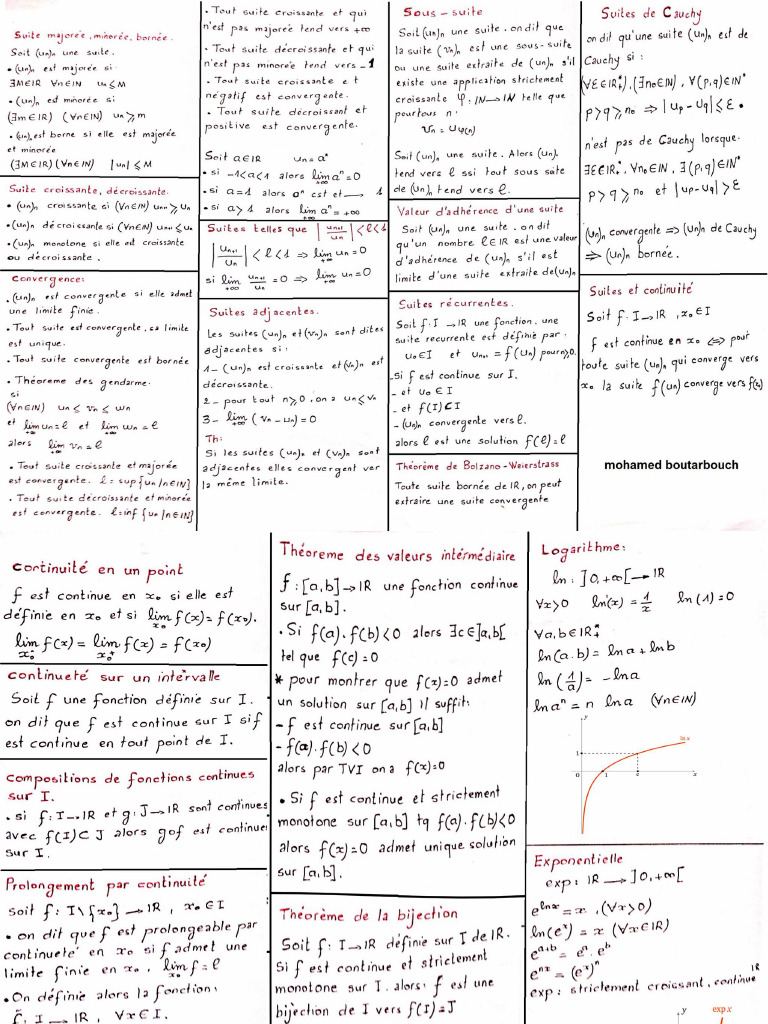 Suite majorée, minorée, bornée.
Soit (un)n une suite.
• (un)n est majorée si
∃M∈IR ∀n∈IN un≤M
• (un)n est minorée si
(∃m∈IR) (∀n∈IN) un≥m
• (un)n est borne si elle est majorée
et minorée
(∃M∈IR)(∀n∈IN) |un|≤M
Suite croissante, décroissante.
• (un)n croissante si (∀n∈IN) un+1≥un
• (un)n décroissante si (∀n∈IN) un+1≤un
• (un)n monotone si elle est croissante
ou décroissante.
Convergence:
• (un)n est convergente si elle admet
une limite finie.
• Tout suite est convergente, sa limite
est unique.
• Tout suite convergente est bornée
• Théoreme des gendarme.
si
(∀n∈IN) un ≤ vn ≤ wn
et lim un = l et lim wn = l
+∞ +∞
alors lim vn = l
+∞
• Tout suite croissante et majorée
est convergente. l = sup{un/n∈IN}
• Tout suite décroissante et minorée
est convergente. l=inf{un/n∈IN}
• Tout suite croissante et qui
n'est pas majorée tend vers +∞
• Tout suite décroissante et qui
n'est pas minorée tend vers -1
• Tout suite croissante et
négatif est convergente.
• Tout suite décroissant et
positive est convergente.
Soit a∈IR un = aⁿ
• si -1<a<1 alors lim aⁿ=0
+∞
• si a=1 alors aⁿ cst et → 1
• si a>1 alors lim aⁿ = +∞
+∞
Suites telles que |un+1/un| < l < 1
|un+1/un| < l < 1 ⇒ lim un = 0
+∞
si lim un+1/un = 0 ⇒ lim un = 0
+∞ +∞
Suites adjacentes.
Les suites (un)n et (vn)n sont dites
adjacentes si:
1- (un)n est croissante et (vn)n est
décroissante.
2- pour tout n≥0, on a un≤vn
3- lim (vn - un) = 0
+∞
Th:
Si les suites (un)n et (vn)n sont
adjacentes elles convergent ver
la même limite.
Sous-suite
Soit (un)n une suite. on dit que
la suite (vn)n est une sous-suite
ou une suite extraite de (un)n s'il
existe une application strictement
croissante φ: IN→IN telle que
pour tous n:
vn = uφ(n)
Soit (un)n une suite. Alors (un)n
tend vers l ssi tout sous suite
de (un)n tend vers l.
Valeur d'adhérence d'une suite
Soit (un)n une suite. on dit
qu'un nombre l∈IR est une valeur
d'adhérence de (un)n s'il est
limite d'une suite extraite de (un)n
Suites récurrentes.
Soit f: I→IR une fonction. une
suite recurrente est définie par:
u0∈I et un+1 = f(un) pour n≥0.
-Si f est continue sur I.
- et u0∈I
- et f(I)⊂I
- (un)n convergente vers l.
alors l est une solution f(l)=l
Théorème de Bolzano-Weierstrass
Toute suite bornée de IR, on peut
extraire une suite convergente
Suites de Cauchy
on dit qu'une suite (un)n est de
Cauchy si:
(∀ε∈IR*+), (∃n0∈IN), ∀(p,q)∈IN*
p>q≥n0 ⇒ |up-uq|≤ε.
n'est pas de Cauchy lorsque.
∃ε∈IR*+, ∀n0∈IN, ∃(p,q)∈IN*
p>q≥n0 et |up-uq|>ε
(un)n convergente ⇒ (un)n de Cauchy
⇒ (un)n bornée.
Suites et continuité
Soit f: I→IR, x0∈I
f est continue en x0 ⇔ pour
toute suite (un)n qui converge vers
x0 la suite f(un) converge vers f(x0)
mohamed boutarbouch
Continuité en un point
f est continue en x0 si elle est
définie en x0 et si lim f(x) = f(x0).
x0
lim f(x) = lim f(x) = f(x0)
x0⁻ x0⁺
continueté sur un intervalle
Soit f une fonction définie sur I.
on dit que f est continue sur I sif
est continue en tout point de I.
Compositions de fonctions continues
sur I.
• si f: I→IR et g: J→IR sont continues
avec f(I)⊂J alors gof est continue
sur I.
Prolongement par continuité
soit f: I\{x0}→IR, x0∈I
• on dit que f est prolongeable par
continueté en x0 si f admet une
limite finie en x0, lim f = l
x0
• On définie alors la fonction:
f̃: I→IR, ∀x∈I.
Théoreme des valeurs intérmédiaire
f: [a,b]→IR une fonction continue
sur [a,b].
• Si f(a).f(b)<0 alors ∃c∈]a,b[
tel que f(c)=0
* pour montrer que f(x)=0 admet
un solution sur [a,b] Il suffit:
- f est continue sur [a,b]
- f(a).f(b)<0
alors par TVI on a f(x)=0
• Si f est continue et strictement
monotone sur [a,b] tq f(a).f(b)<0
alors f(x)=0 admet unique solution
sur [a,b].
Théorème de la bijection
Soit f: I→IR définie sur I de IR.
Si f est continue et strictement
monotone sur I. alors: f est une
bijection de I vers f(I)=J
Logarithme:
ln: ]0,+∞[→IR
∀x>0 ln'(x) = 1/x ln(1)=0
∀a,b∈IR*+
ln(a.b) = lna + lnb
ln(1/a) = -lna
ln aⁿ = n lna (∀n∈IN)
y
ln x
1
0 1 e x
Exponentielle
exp: IR→]0,+∞[
e^lnx = x, (∀x>0)
ln(eˣ) = x (∀x∈IR)
e^a+b = eᵃ. eᵇ
e^nx = (eˣ)ⁿ
exp: strictement croissant, continue IR
y
exp x